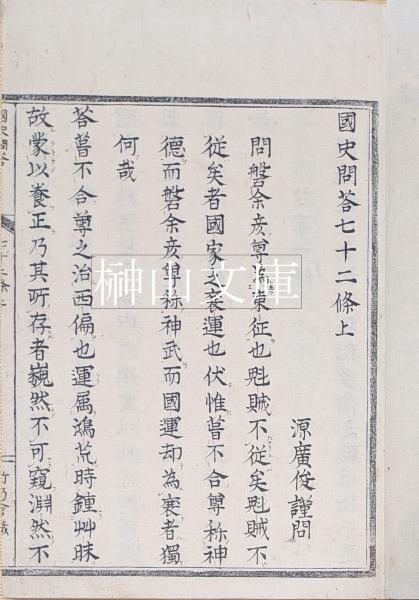 國史問答七十二條上
源廣從謹問
問磐余彦尊東征也兇賊不從矣兇賊不
從矣者國家之衰運也伏惟葺不合尊称神
德而磐余彦尊称神武而國運却為衰者獨
何哉
荅葺不合尊之治西偏也運属鴻荒時鍾艸昧
故蒙以養正乃其所存者巍然不可窺淵然不
榊山文庫